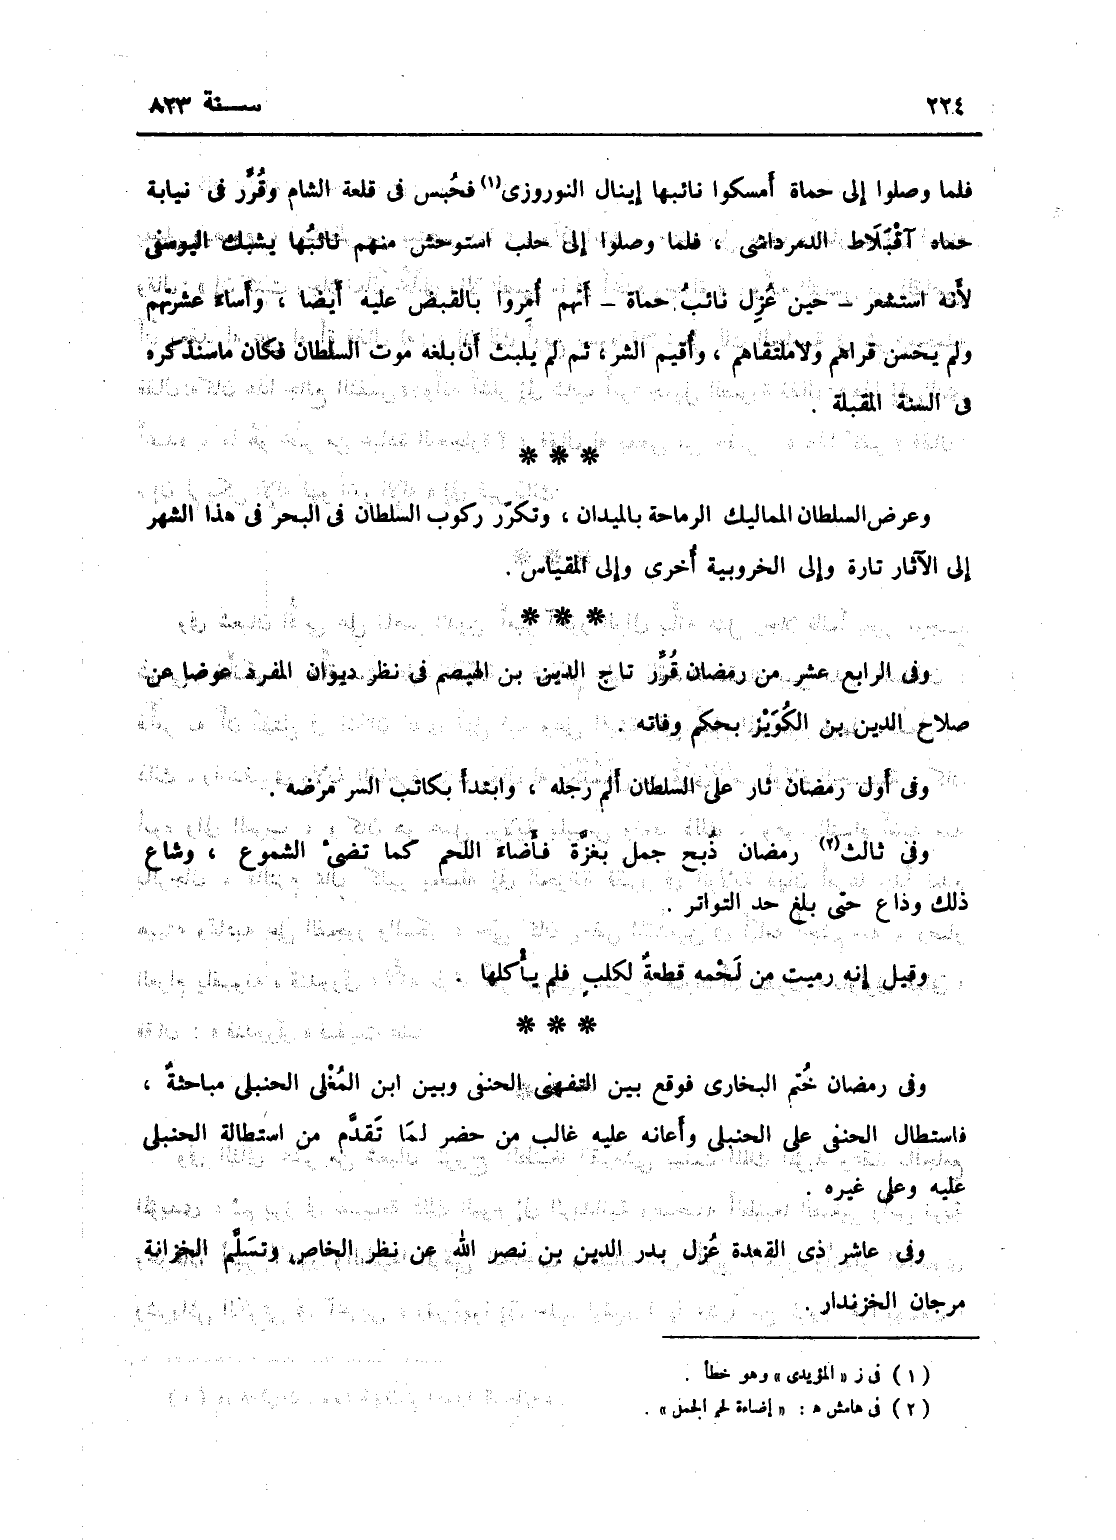 ٢٢٤
سـنة ٨٢٣
فلما وصلوا إلى حماة أَمسكوا نائبها إينال النوروزى(١) فحُبس فى قلعة الشام وقُرِّر فى نيابة
حماه آقْبَلَاط الدمرداشى ، فلما وصلوا إلى حلب استوحش منهم نائبُها يشبك اليوسفى
لأَنه استشعر – حين عُزِل نائبُ حماة – أَنهم أُمِروا بالقبض عليه أَيضا ، وأَساءَ عشرتهم
ولم يحسن قراهم ولاملتقاهم ، وأُقيم الشر ، ثم لم يلبث أَن بلغه موت السلطان فكان ماسنذكره
فى السنة المقبلة .
* * *
وعرض السلطان المماليك الرماحة بالميدان ، وتكرّر ركوب السلطان فى البحر فى هذا الشهر
إلى الآثار تارة وإلى الخروبية أُخرى وإلى المقياس .
* * *
وفى الرابع عشر من رمضان قُرِّر تاج الدين بن الهيصم فى نظر ديوان المفرد عوضا عن
صلاح الدين بن الكُوَيْز بحكم وفاته .
وفى أول رمضان ثار على السلطان أَلم رجله ، وابتدأَ بكاتب السر مرضه .
وفى ثالث(٢) رمضان ذُبح جمل بغزَّة فأَضاءَ اللحم كما تضىْ الشموع ، وشاع
ذلك وذاع حتى بلغ حد التواتر .
وقيل إنه رميت من لَحْمه قطعةٌ لكلبٍ فلم يأْكلها .
* * *
وفى رمضان خُتم البخارى فوقع بين التفهنى الحنفى وبين ابن المُغْلى الحنبلى مباحثةٌ ،
فاستطال الحنفى على الحنبلى وأَعانه عليه غالب من حضر لمَا تَقدَّم من استطالة الحنبلى
عليه وعلى غيره .
وفى عاشر ذى القعدة عُزل بدر الدين بن نصر الله عن نظر الخاص وتسَلَّم الخزانة
مرجان الخزندار .
( ١ ) فى ز « المؤيدى » وهو خطأ .
( ٢ ) فى هامش ه : « إضاءة لحم الجمل » .